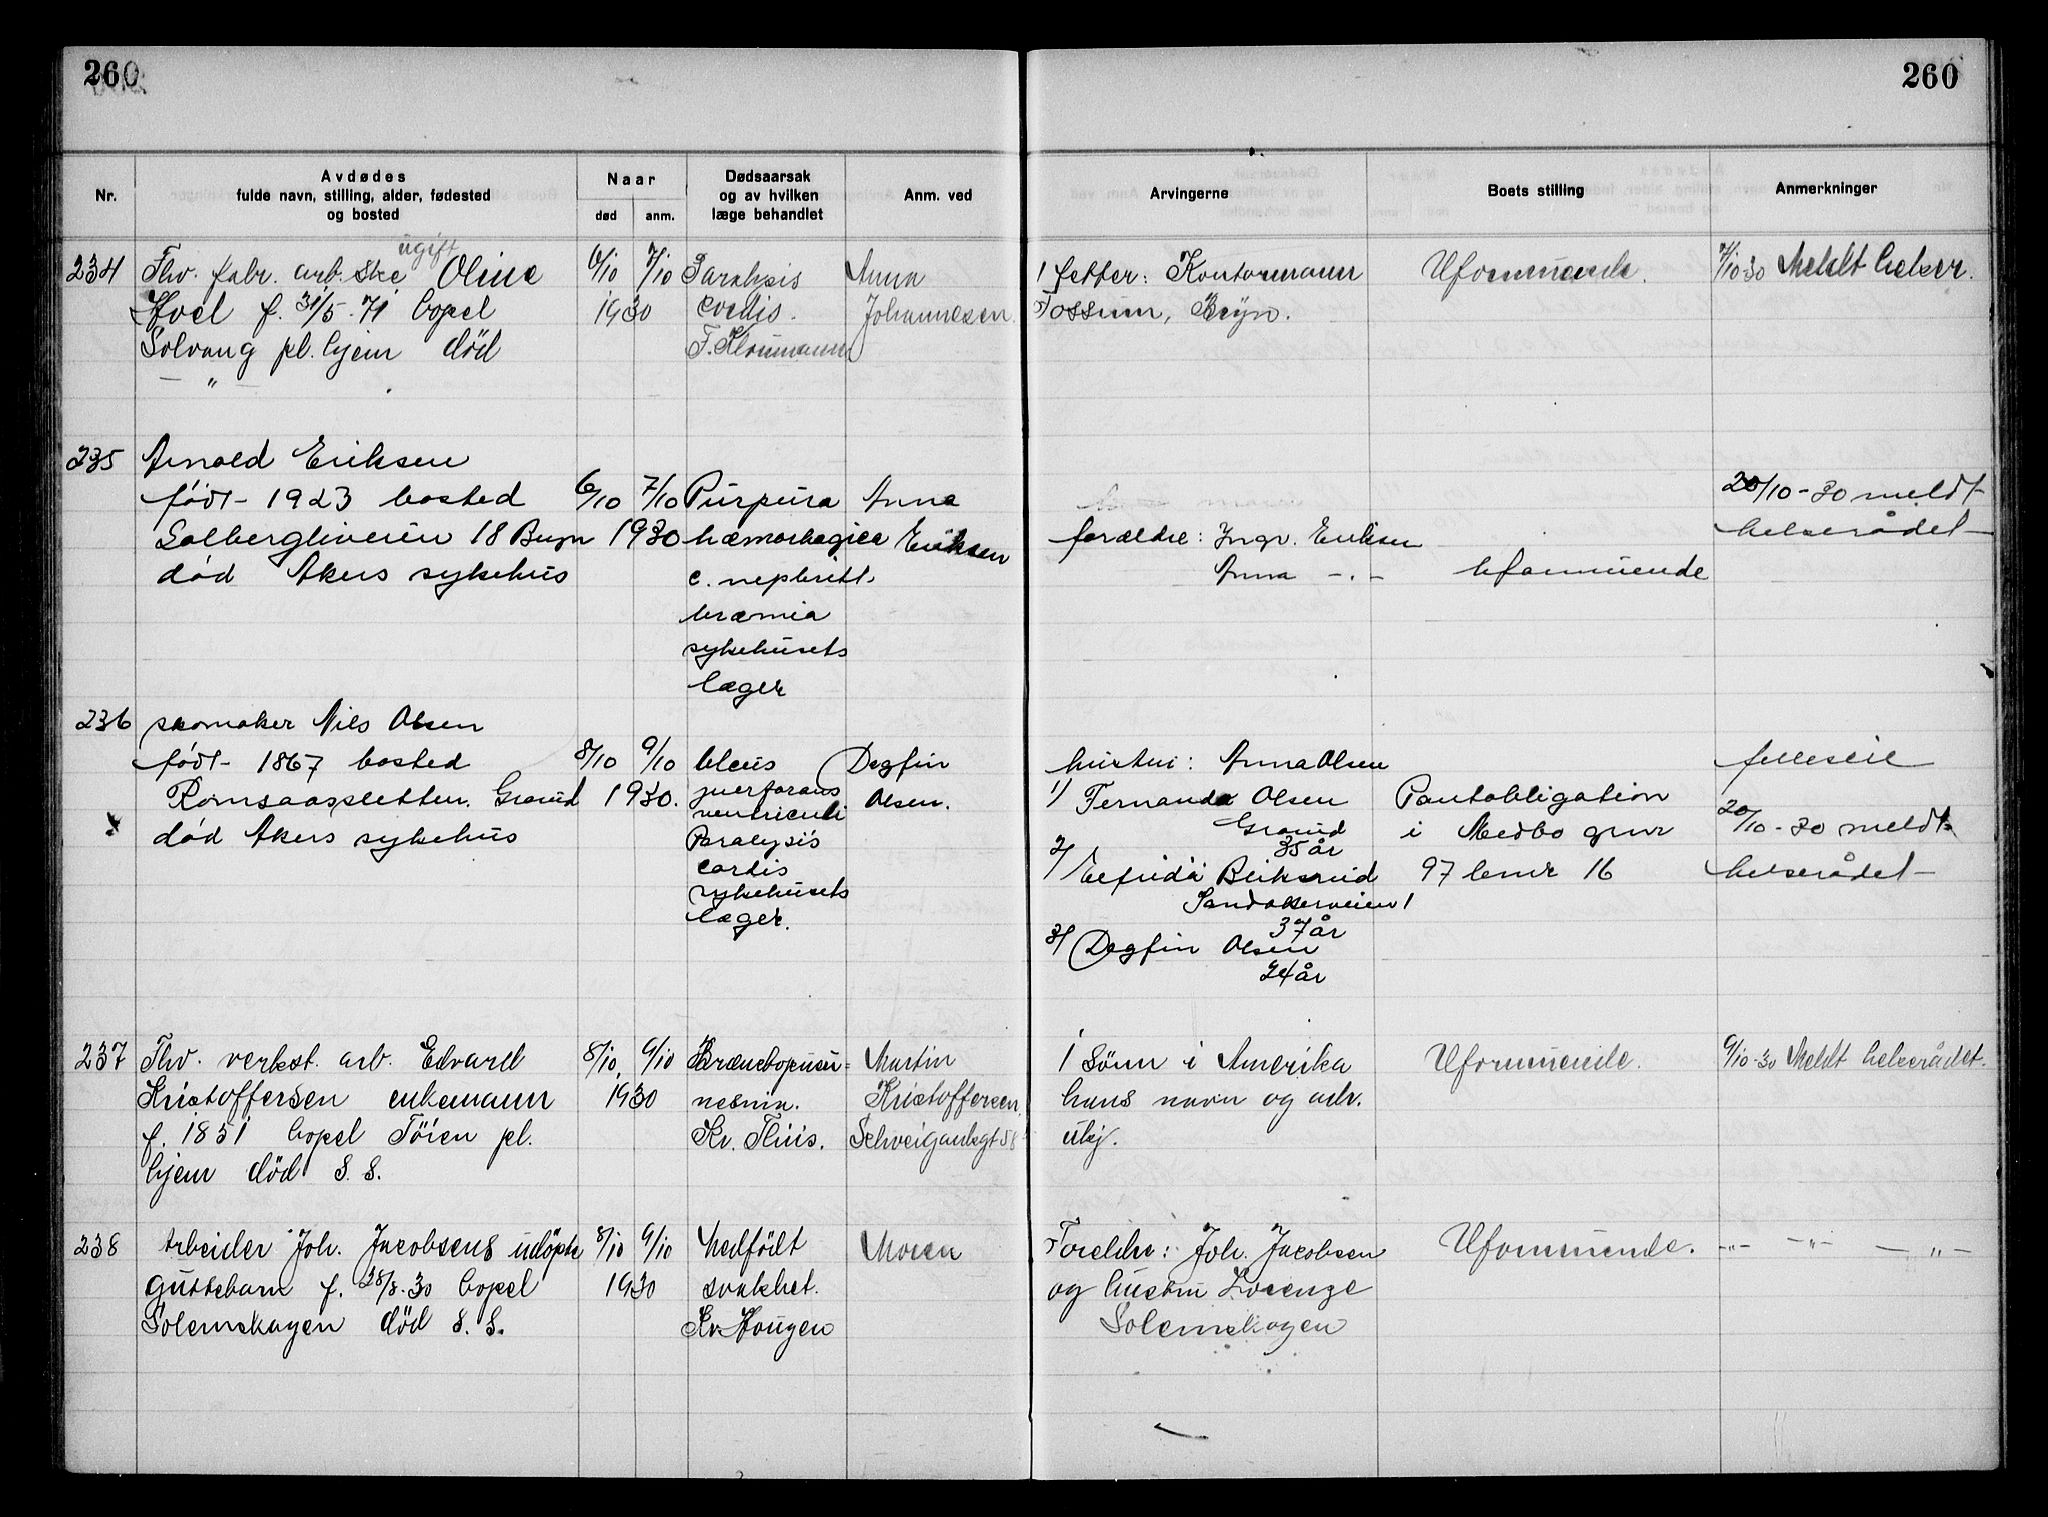 260
260
Nr.
Avdødes
fulde navn, stilling, alder, fødested
og bosted
Naar
død
anm.
Dødsaarsak
og av hvilken
læge behandlet
Anm. ved
Arvingerne
Boets stilling
Anmerkninger
234
Fhv. fabr. arb. ske ugift Oline
Hoel f. 31/5.71 bopel
Solvang pl. hjem død
— " —
6/10 7/10
1930
Paralysis
cordis.
F. Kloumann
Anna
Johannesen.
1 fetter: Kontormann
Fossum, Bryn.
Uformuende.
7/10 30 Meldt helser.
235
Arnold Eriksen
født 1923 bosted
Solbergliveien 18 Bryn
død Akers sykehus
6/10 7/10
1930
Purpura
hæmorhagica
c. nephritt
uræmia
sykehusets
læger
Anna
Eriksen
forældre: Ingv. Eriksen
Anna - . -
Uformuende
20/10 - 30 meldt
helserådet
236
skomaker Nils Olsen
født 1867 bosted
Romsaasletten. Grorud
død Akers sykehus
8/10 9/10
1930.
Ulcus
perforans
ventriculi
Paralysis
cordis
sykehusets
læger.
Dagfin
Olsen.
hustru: Anna Olsen
1) Fernanda Olsen
Grorud
35 år
2) Elfrida
Sandakerveien 1
37 år
3) Dagfin Olsen
24 år
Pantobligation
i Medbo gnr
97 bnr 16
felleseie
20/10 - 30 meldt
helserådet
237
Fhv. verkst. arb. Edvard
Kristoffersen enkemann
f. 1851 bopel Töien pl.
hjem død S. S.
8/10, 9/10
1930
Bronchopneu-
nesmia.
Kr. Thiis.
Martin
Kristoffersen,
Schweigaardsgt 58
1 Sönn i Amerika
hans navn og adr.
ukj.
Uformuende.
9/10-30 Meldt helserådet.
238
Arbeider Joh. Jacobsens udöpte
guttebarn f. 28/8.30 bopel
Solemskogen död S. S.
8/10 9/10
1930
Medfödt
svakhet.
Kr. Hougen
Moren
Foreldre: Joh. Jacobsen
og hustru Lorenze
Solemskogen
Uformuende.
-"- -"- — " —